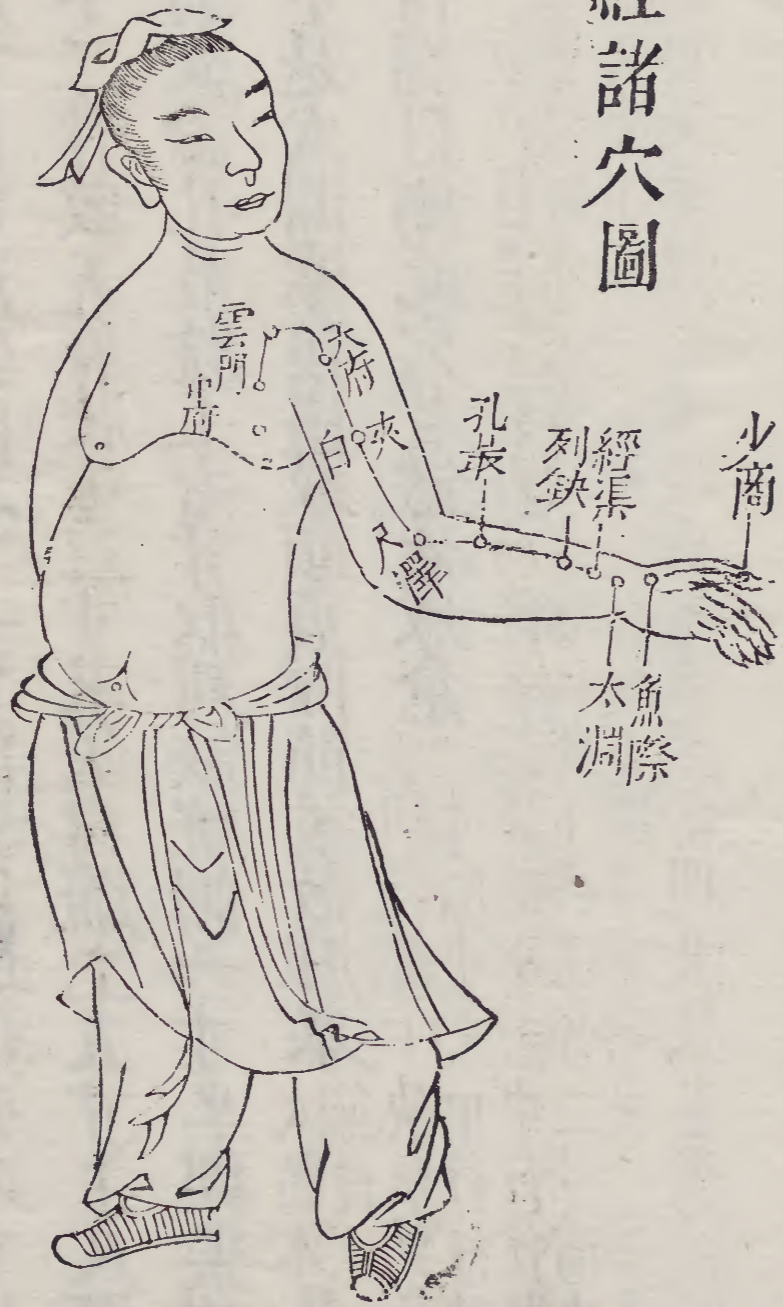 經諸穴圖
少商
經渠
列缺
孔最
魚際
太淵
天府
俠白
尺澤
雲門
中府